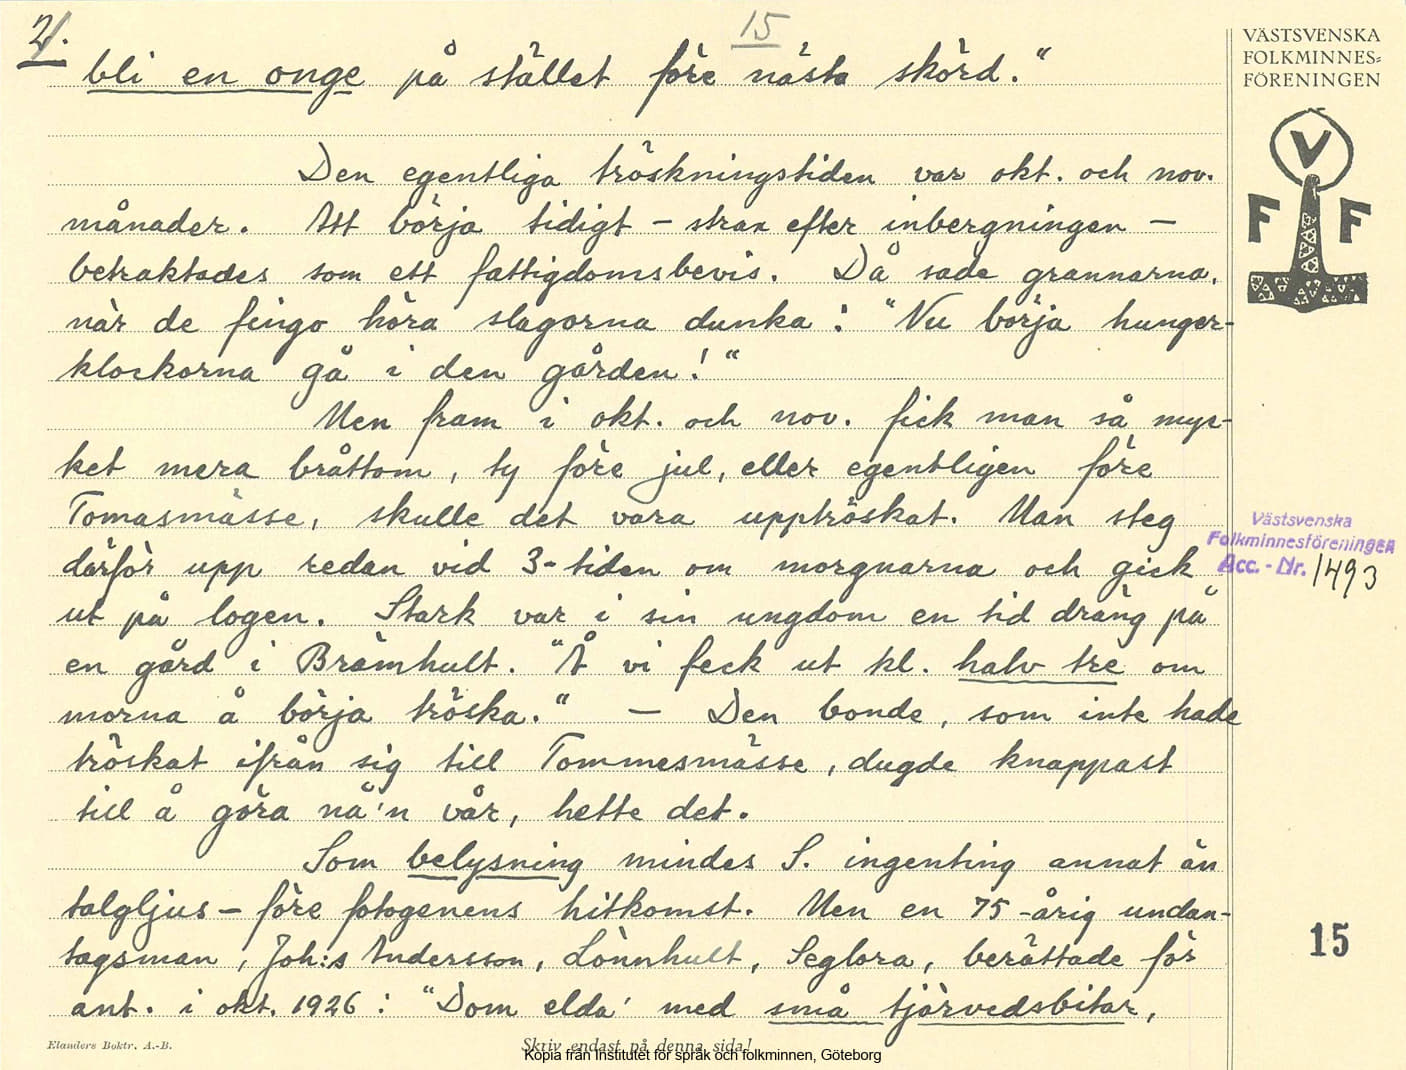 2.
15
bli en onge på stället före nästa skörd."
Den egentliga tröskningstiden var okt. och nov.
månader. Att börja tidigt – strax efter inbergningen –
betraktades som ett fattigdomsbevis. Då sade grannarna,
när de fingo höra slagorna dunka: "Nu börja hunger-
klockorna gå i den gården!"
Men fram i okt. och nov. fick man så myc-
ket mera bråttom, ty före jul, eller egentligen före
Tomasmässe, skulle det vara upptröskat. Man steg
därför upp redan vid 3-tiden om morgnarna och gick
ut på logen. Stark var i sin ungdom en tid dräng på
en gård i Brämhult. "Å vi feck ut kl. halv tre om
morna å börja tröska." – Den bonde, som inte hade
tröskat ifrån sig till Tommesmässe, dugde knappast
till å göra nå'n vår, hette det.
Som belysning mindes S. ingenting annat än
talgljus – före fotogenens hitkomst. Men en 75-årig undan-
tagsman, Joh:s Andersson, Lönnhult, Seglora, berättade för
ant. i okt. 1926: "Dom elda' med små tjärvedsbitar,
VÄSTSVENSKA
FOLKMINNES=
FÖRENINGEN
V
F F
Västsvenska
Folkminnesföreningen
Acc.-Nr. 1493
15
Elanders Boktr. A.-B.
Skriv endast på denna sida!
Kopia från Institutet för språk och folkminnen, Göteborg